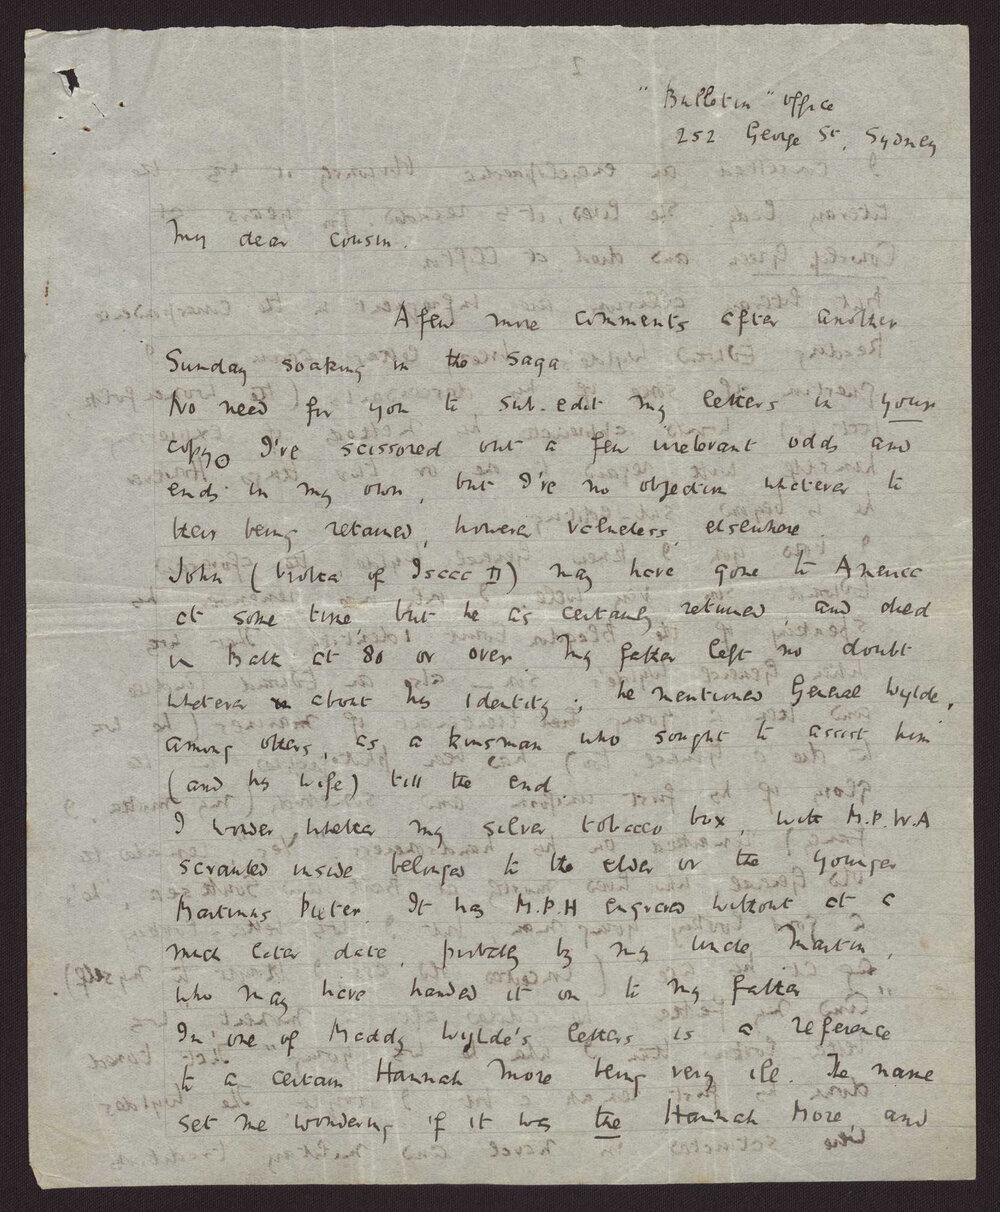 "Bulletin" office
252 George St, Sydney
My dear cousin.
A few more comments after another
Sunday soaking in the saga
No need for you to sub-edit my letters in your
copy. I've scissored out a few irrelevant odds and
ends in my own, but I've no objection whatever to
their being retained, however valueless, elsewhere.
John (brother of Isaac II) may have gone to America
at some time but he as certainly returned, and died
in Bath at 80 or over. My father left no doubt
whatever about his identity; he mentioned General Wylde,
among others, as a kinsman who sought to assist him
(and his wife) till the end.
I wonder whether my silver tobacco box, with M.P.W.A
scrawled inside belonged to the elder or the younger
Martinus Pieter. It has M.P.H engraved without at a
much later date, probably by my uncle Martin,
who may have handed it on to my father
In one of Maddy Wylde's letters is a reference
to a certain Hannah More being very ill. The name
set me wondering if it was the Hannah More, and